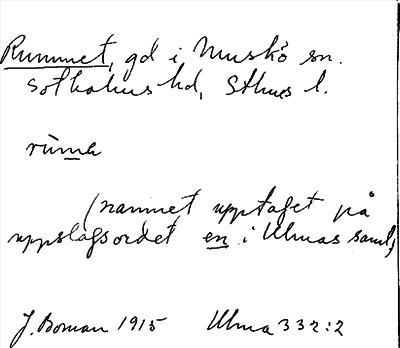 Rummet, gd i Muskö sn.
Sotholms hd, Sthms l.
(namnet upptaget på
uppslagsordet en i Ulmas saml.)
J. Boman 1915 Ulma 332:2